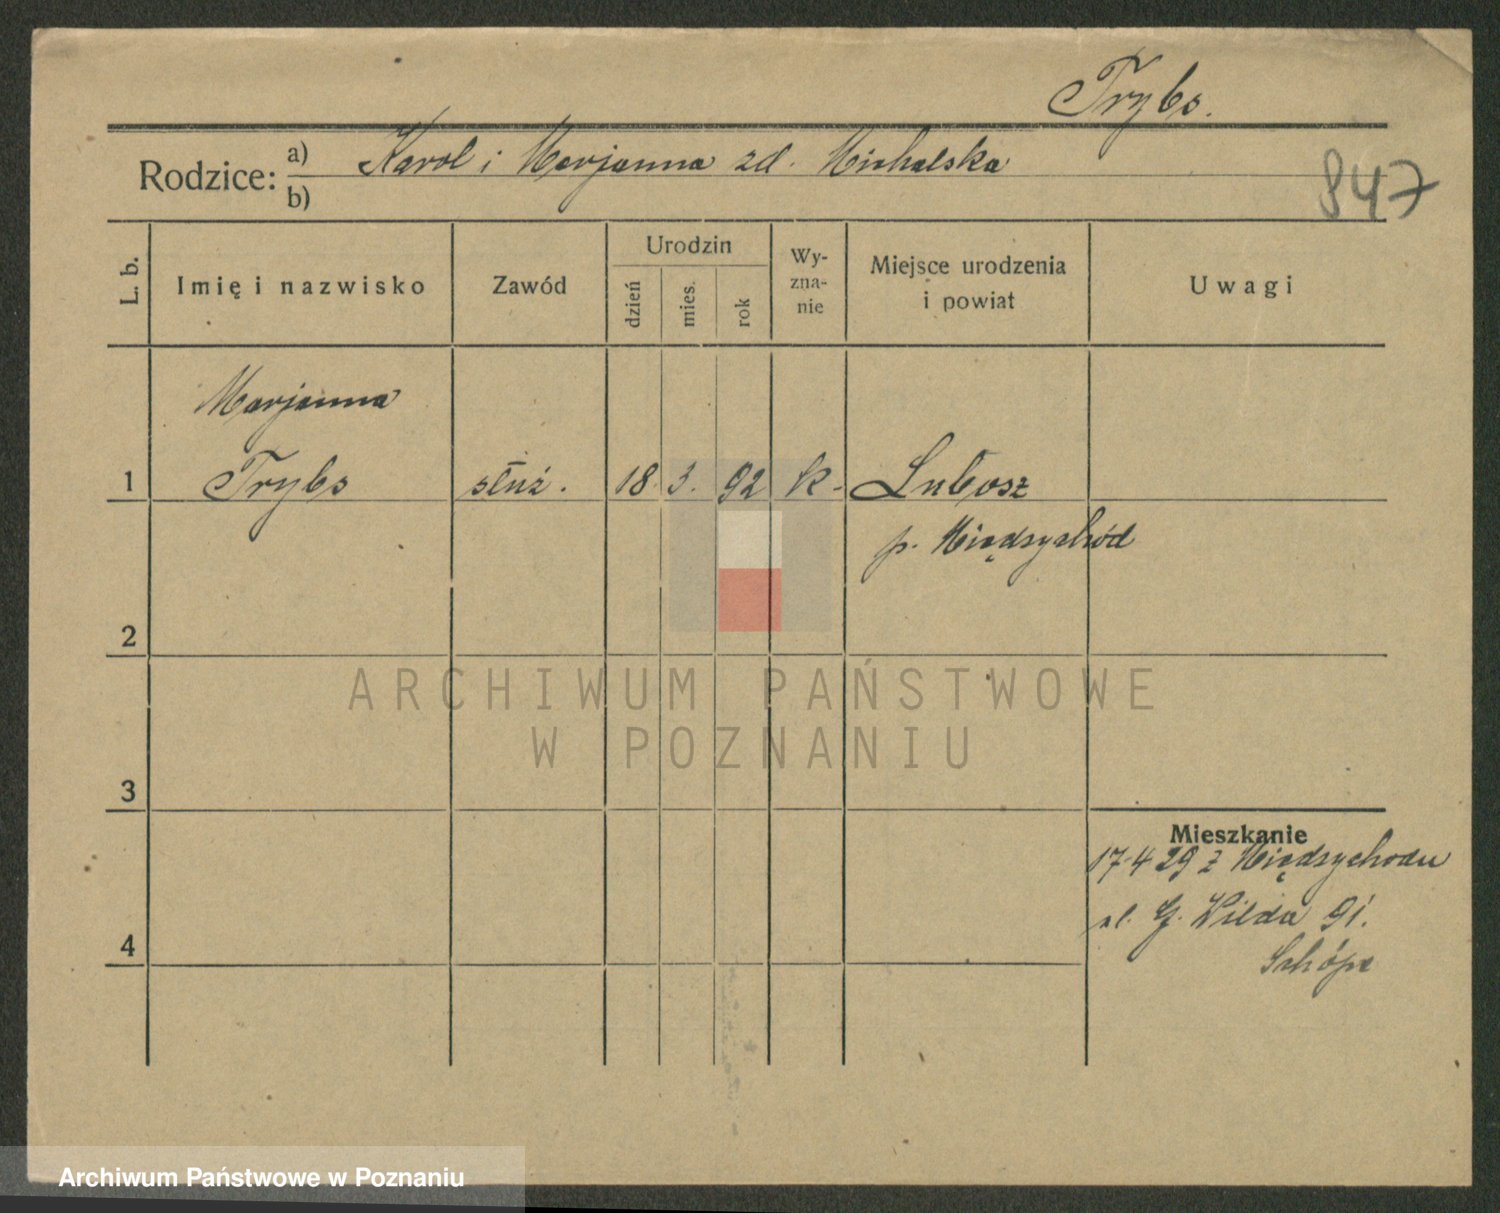 Trybs.
Rodzice: a) Karol i Marjanna zd. Michalska
b)
847
L. b. Imię i nazwisko Zawód Urodzin dzień mies. rok Wy-zna-nie Miejsce urodzenia i powiat Uwagi
Marjanna
1 Trybs służ. 18. 3. 92 k. Lubosz
p. Międzychód
2
ARCHIWUM PAŃSTWOWE
W POZNANIU
3
Mieszkanie
17.4 29 z Międzychodu
ul. G. Wilda 91.
4
Archiwum Państwowe w Poznaniu